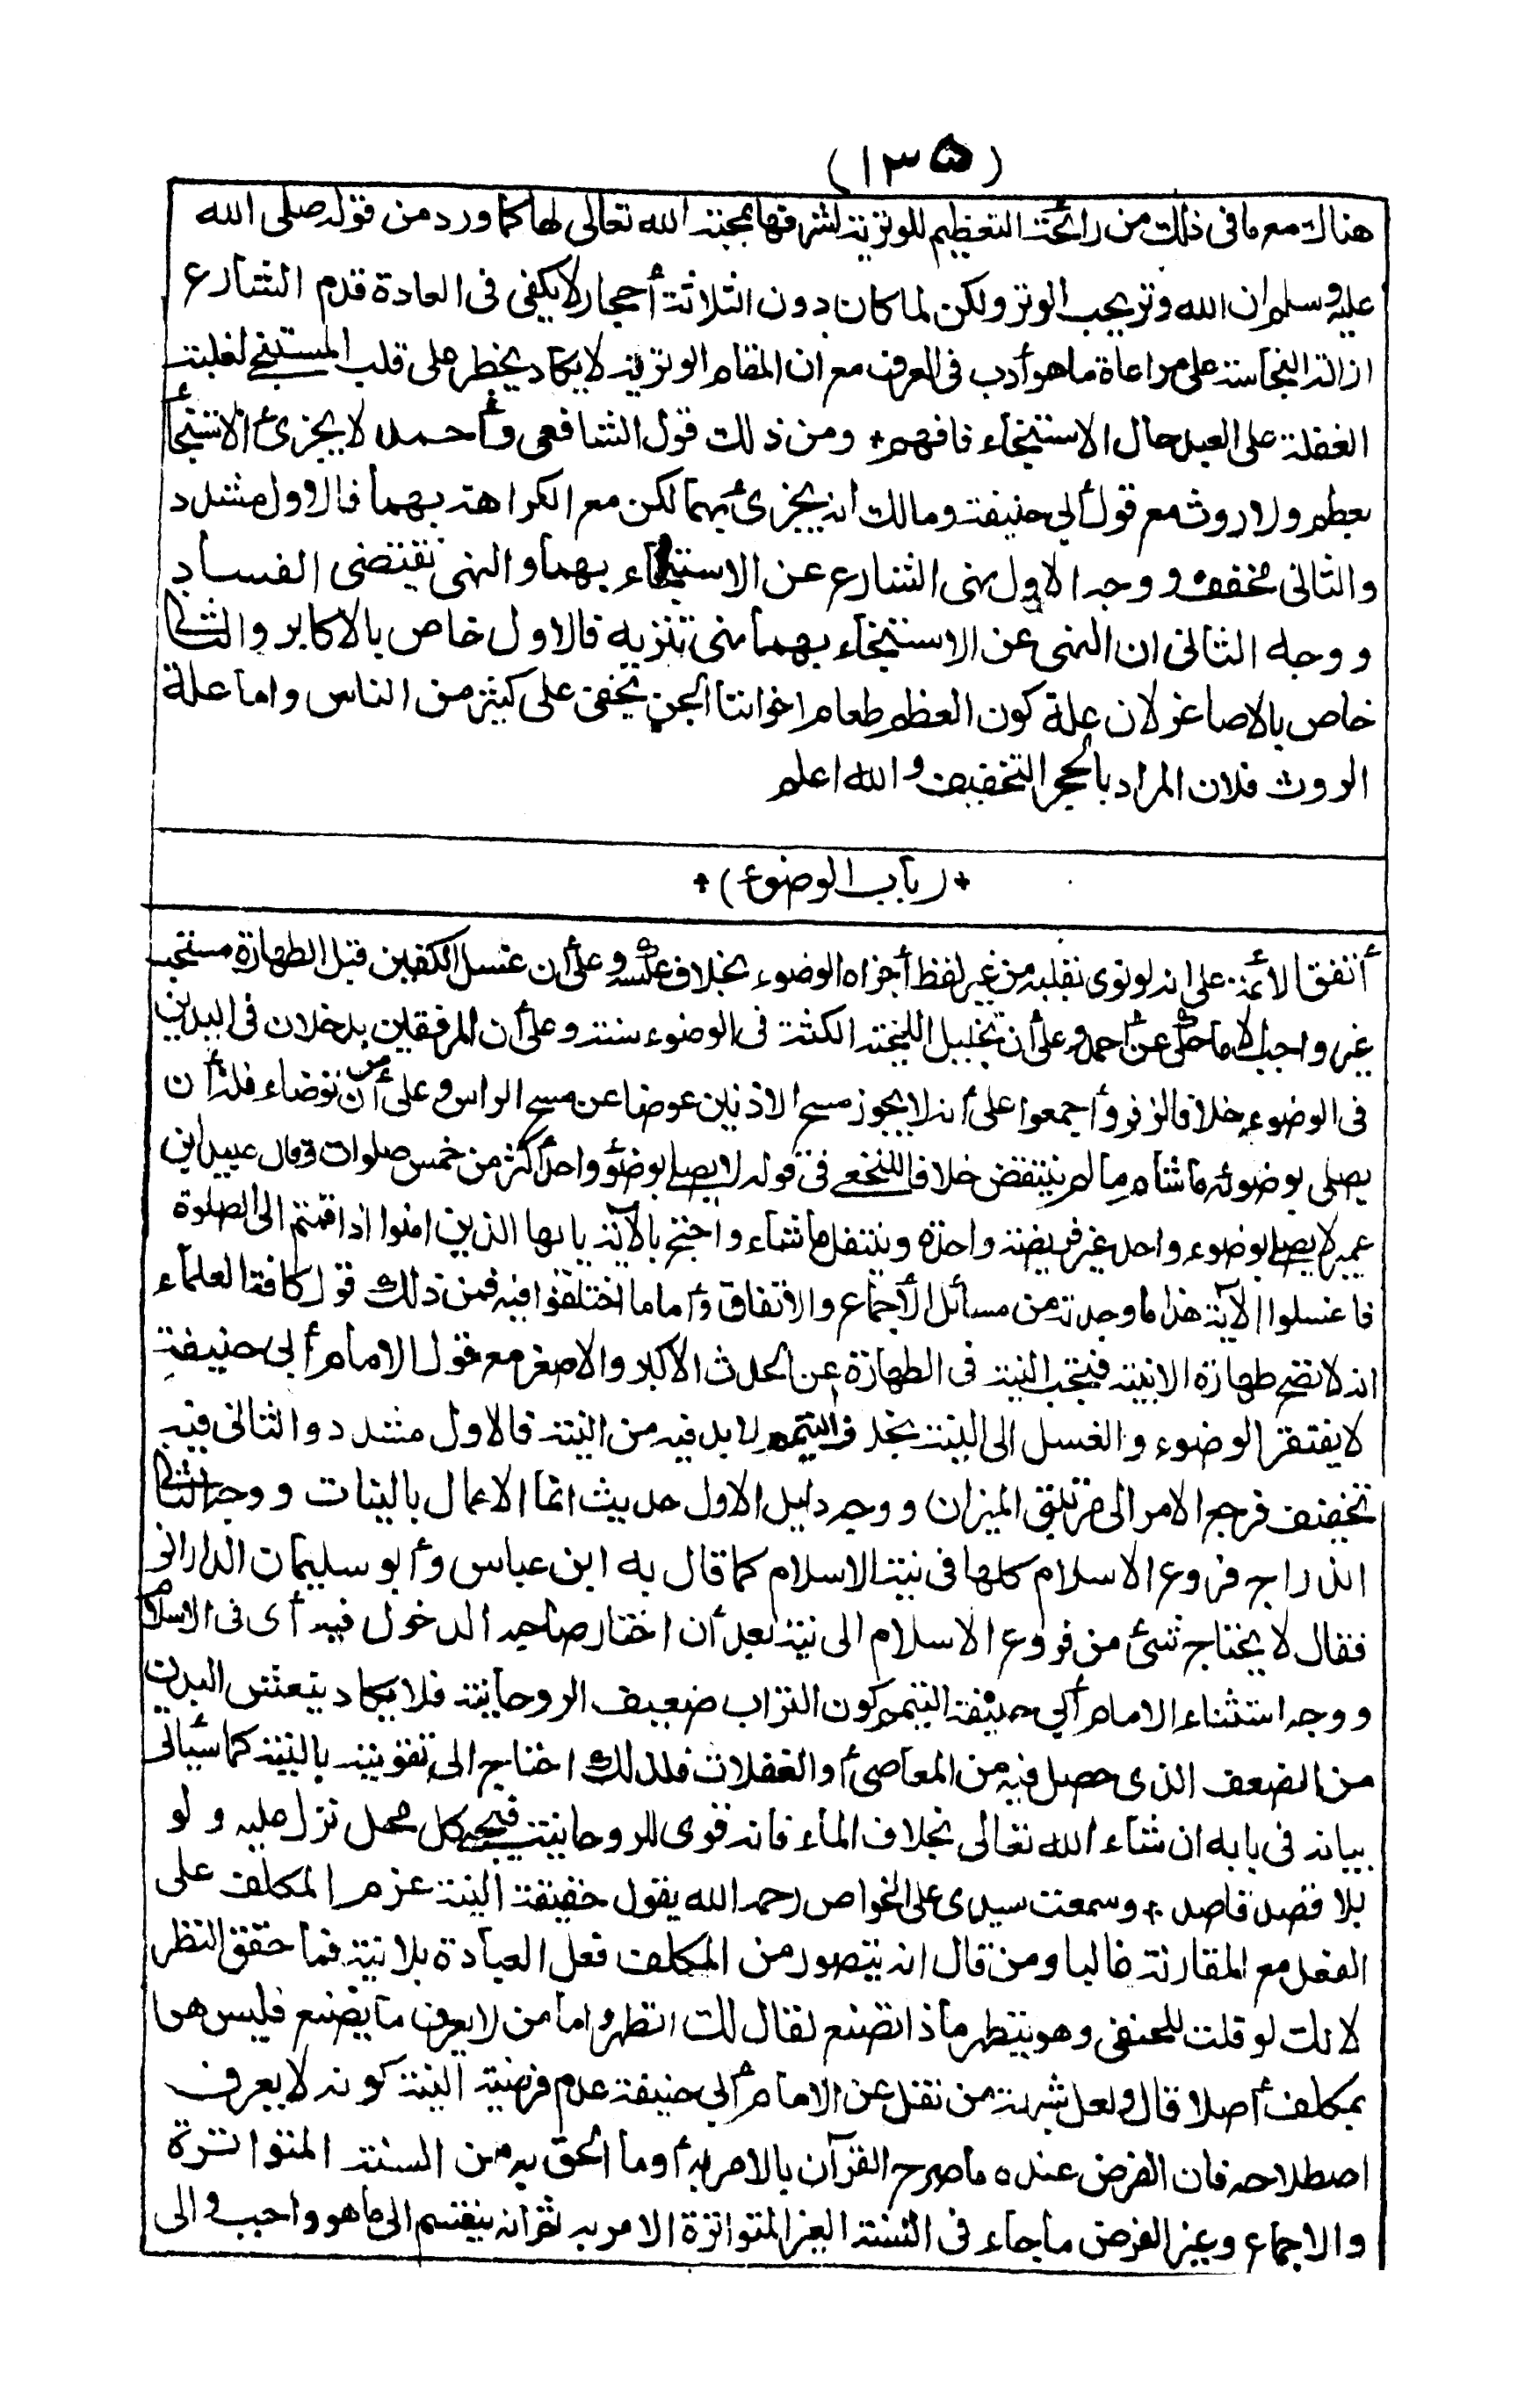 (١٣٥)
هناك مع ما فى ذلك من رائحة التعظيم للوترية لشرفها بمحبة الله تعالى لها كما ورد من قوله صلى الله
عليه وسلم ان الله وتر يحب الوتر ولكن لما كان دون الثلاثة أحجار لا يكفى فى العادة قدم الشارع
ازالة النجاسة على مراعاة ما هو أدب فى العرف مع ان المقام الوترية لا يكاد يخطر على قلب المستنجى لغلبة
الغفلة على العبد حال الاستنجاء فافهم + ومن ذلك قول الشافعى وأحمد لا يجزئ الاستنجأ
بعظم ولا روث مع قول أبى حنيفة ومالك انه يجزئ بهما لكن مع الكراهة بهما فالاول مشدد
والثانى مخفف ووجه الاول نهى الشارع عن الاستنجاء بهما والنهى تقتضى الفساد
ووجه الثانى ان النهى عن الاستنجاء بهما نهى تنزيه فالاول خاص بالاكابر والثانى
خاص بالاصاغر لان علة كون العظم طعام اخواننا الجن يخفى على كثير من الناس واما علة
الروث فلان المراد بالحجر التخفيف والله اعلم
+ (باب الوضوء) +
أتفق الأئمة على انه لو نوى بقلبه من غير لفظ أجزاه الوضوء بخلاف عكسه وعلى أن غسل الكفين قبل الطهارة مستحب
غير واجب الا ما حكى عن أحمد وعلى أن تخليل اللحية الكثة فى الوضوء سنة وعلى أن المرفقين يدخلان فى اليدين
فى الوضوء خلافا لزفر وأجمعوا على أنه لا يجوز مسح الاذنين عوضا عن مسح الراس وعلى أن من توضاء فله أن
يصلى بوضوئه ما شاء ما لم ينتقض خلافا للنخعى فى قوله لا يصلى بوضوء واحد أكثر من خمس صلوات وقال عبيد ابن
عمير لا يصلى بوضوء واحد غير فريضة واحدة ويتنفل ما شاء واحتج بالآية يايها الذين امنوا اذا قمتم الى الصلوة
فاغسلوا الآية هذا ما وجدته من مسائل الأجماع والاتفاق وأما ما اختلفوا فيه فمن ذلك قول كافة العلماء
انه لا تصح طهارة الا بنية فتجب النية فى الطهارة عن الحدث الأكبر والاصغر مع قول الامام أبى حنيفة
لا يفتقر الوضوء والغسل الى النية بخلاف التيمم لا بد فيه من النية فالاول مشدد والثانى فيه
تخفيف فرجع الامر الى مرتبتى الميزان ووجه دليل الاول حديث انما الاعمال بالنيات ووجه الثانى
اندراج فروع الاسلام كلها فى نية الاسلام كما قال به ابن عباس وأبو سليمان الدارانى
فقال لا يحتاج شئ من فروع الاسلام الى نية بعد أن اختار صاحبه الدخول فيه أى فى الاسلام
ووجه استثناء الامام أبى حنيفة التيمم كون التراب ضعيف الروحانية فلا يكاد ينعش البدن
من الضعف الذى حصل فيه من المعاصى أو الغفلات فلذلك احتاج الى تقويته بالنية كما سيأتى
بيانه فى بابه ان شاء الله تعالى بخلاف الماء فانه قوى للروحانية فيحى كل محل نزل عليه ولو
بلا قصد قاصد + وسمعت سيدى على الخواص رحمه الله يقول حقيقة النية عزم المكلف على
الفعل مع المقارنة غالبا ومن قال انه يتصور من المكلف فعل العبادة بلا نية فما حقق النظر
لانك لو قلت للحنفى وهو يتطهر ماذا تصنع لقال لك اتطهر واما من لا يعرف ما يصنع فليس هو
بمكلف أصلا قال ولعل شبهة من نقل عن الامام أبى حنيفة عدم فرضية النية كونه لا يعرف
اصطلاحه فان الفرض عنده ما صرح القرآن بالامر به أو ما الحق به من السنة المتواترة
والاجماع وغير الفرض ما جاء فى السنة الغير المتواترة الامر به ثم انه ينقسم الى ما هو واجب والى